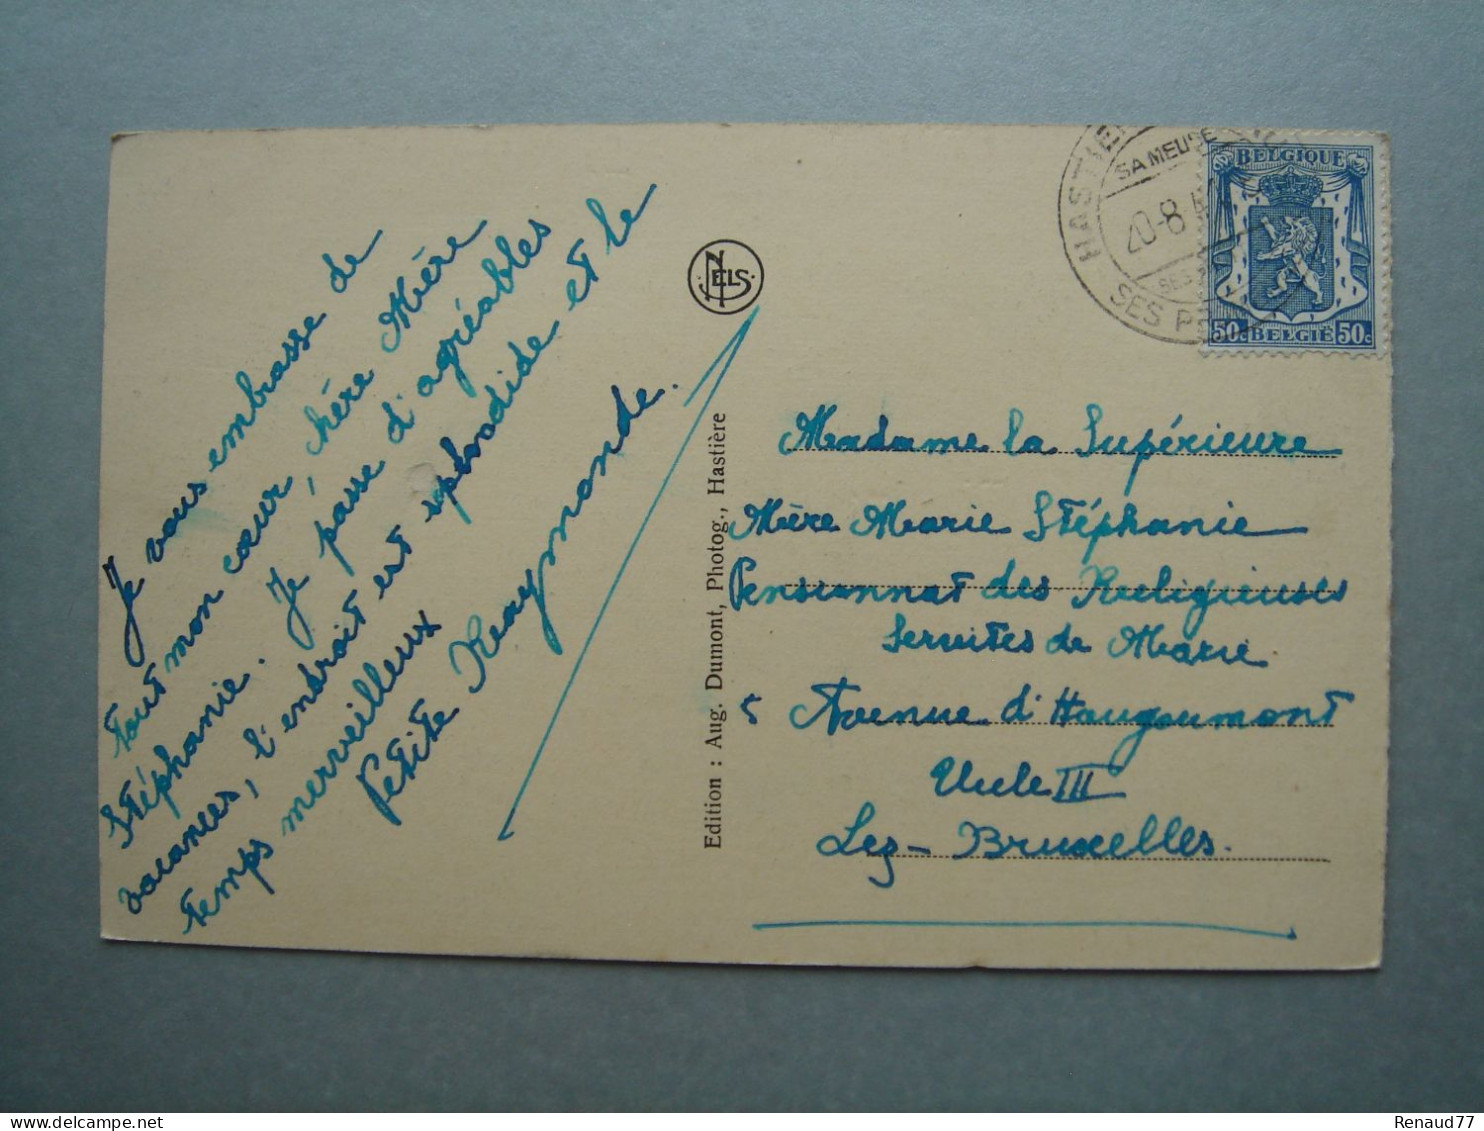 Je vous embrasse de
tout mon cœur, chère Mère
Stéphanie. Je passe d'agréables
vacances, l'endroit est sphodide et le
temps merveilleux
Petite Raymonde.
NELS
Edition : Aug. Dumont, Photog., Hastière
HASTIÈ
SA MEUSE
20-8
SES P
BELGIQUE
50c BELGIË 50c
Madame la Supérieure
Mère Marie Stéphanie
Pensionnat des Religieuses
Servites de Marie
5 Avenue d'Haugoumont
Uccle III
Lez-Bruxelles.
www.delcampe.net
Renaud77